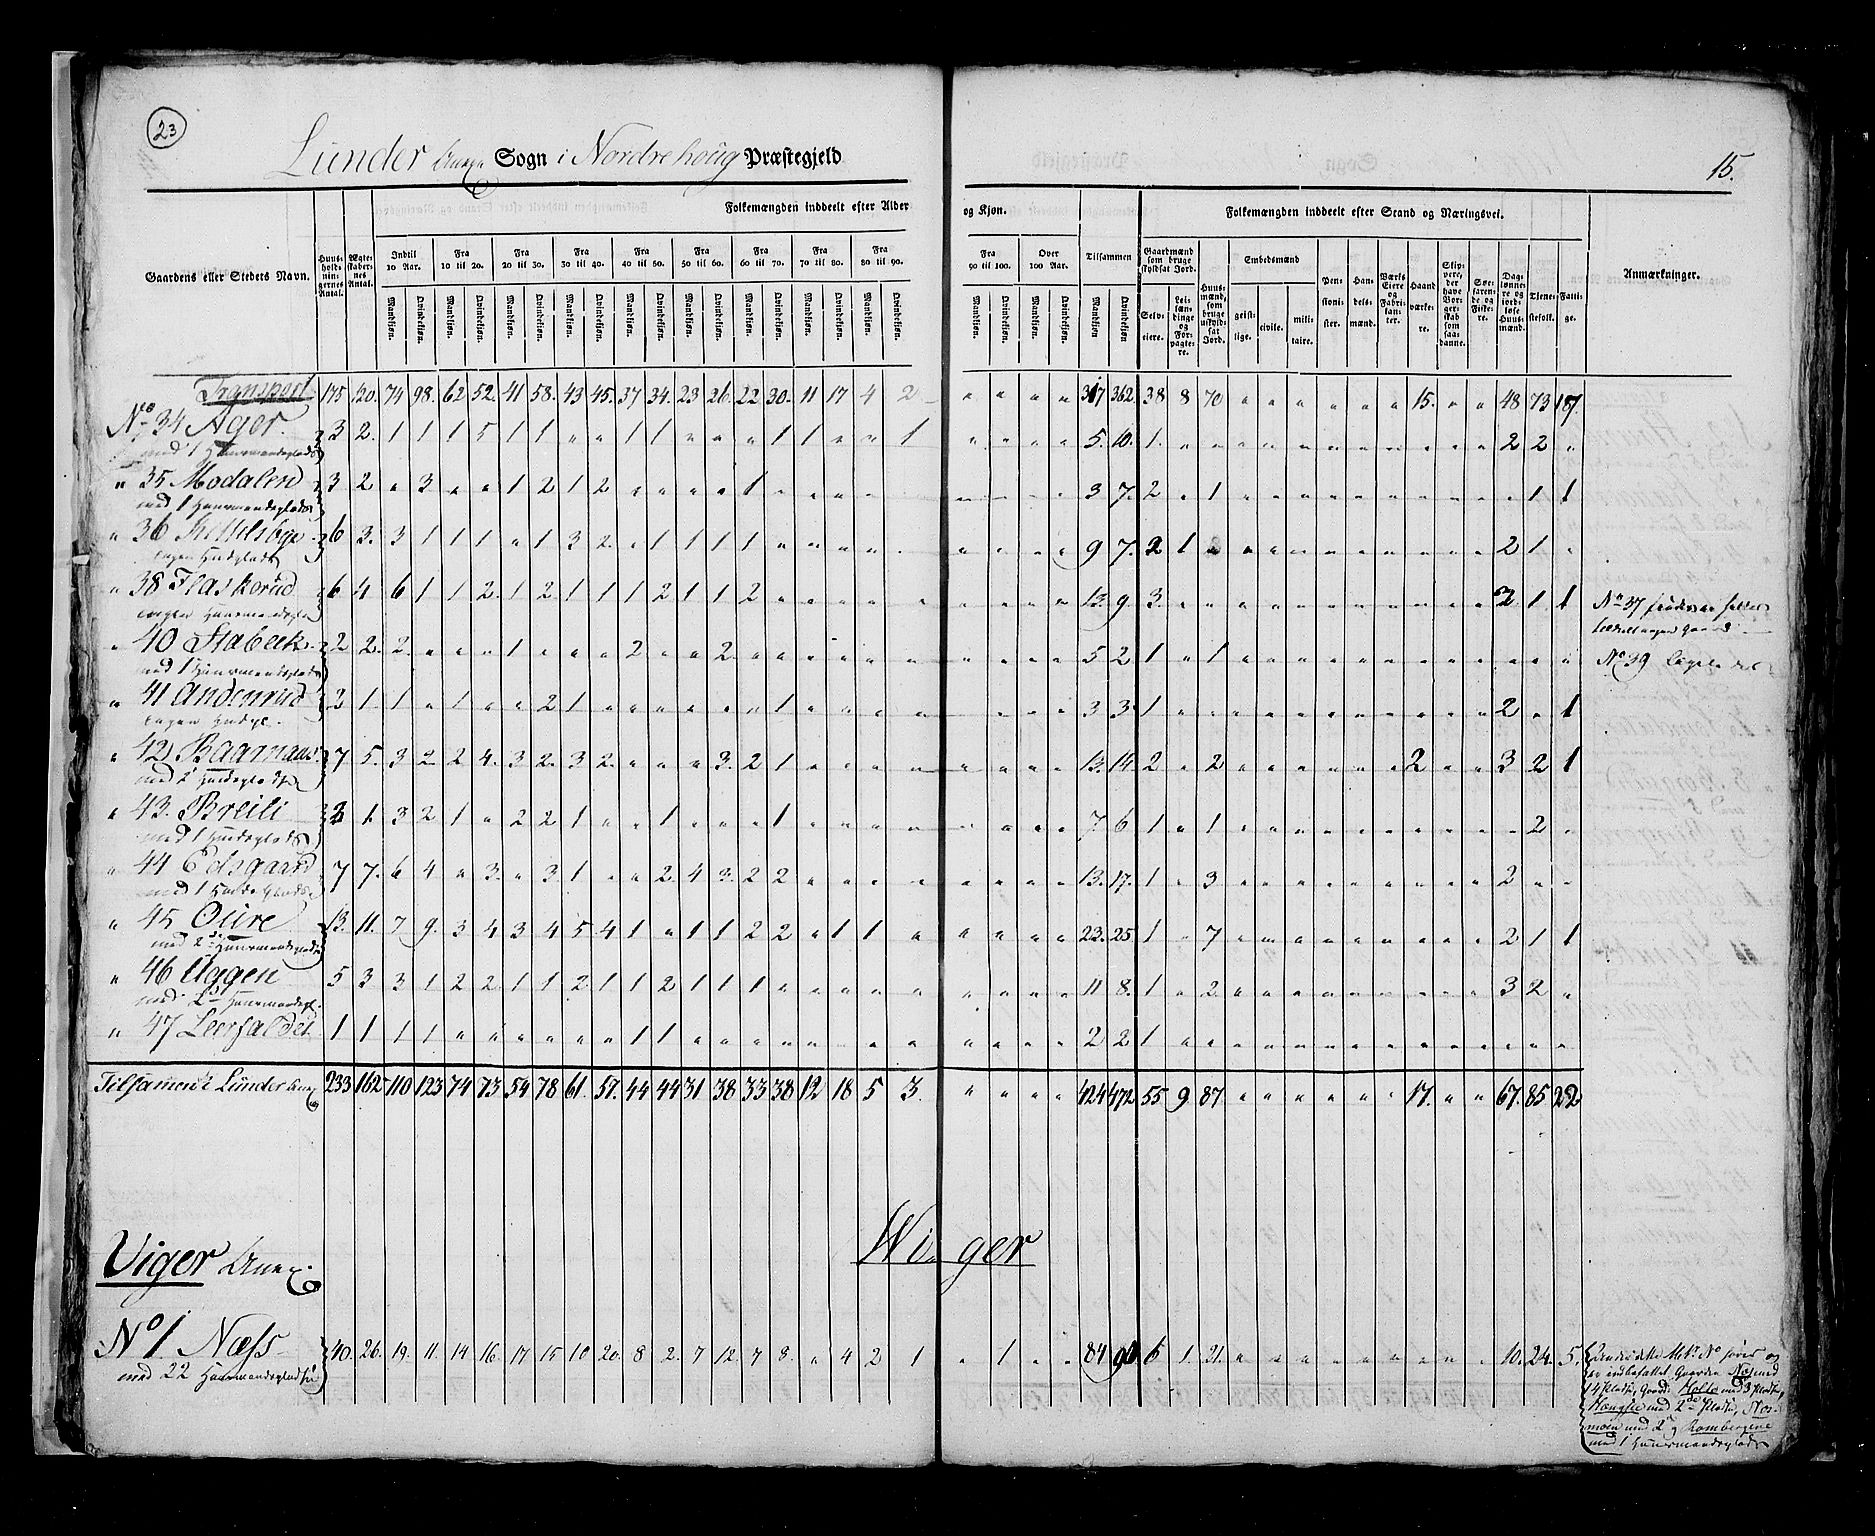 23
Lunder Annex Sogn i Nordrehoug Præstegjeld
15.
Gaardens eller Stedets Navn. Huusholdningernes Antal. Ægteskabernes Antal. Folkemængden inddeelt efter Alder og Kjøn. Tilsammen Folkemængden inddeelt efter Stand og Næringsvei. Anmærkninger.
Indtil 10 Aar. Fra 10 til 20. Fra 20 til 30. Fra 30 til 40. Fra 40 til 50. Fra 50 til 60. Fra 60 til 70. Fra 70 til 80. Fra 80 til 90. Fra 90 til 100. Over 100 Aar.
Mandkjøn. Qvindekjøn. Mandkjøn. Qvindekjøn. Mandkjøn. Qvindekjøn. Mandkjøn. Qvindekjøn. Mandkjøn. Qvindekjøn. Mandkjøn. Qvindekjøn. Mandkjøn. Qvindekjøn. Mandkjøn. Qvindekjøn. Mandkjøn. Qvindekjøn. Mandkjøn. Qvindekjøn. Mandkjøn. Qvindekjøn. Mandkjøn Qvindekjøn.
Gaardmænd som bruge skyldsat Jord. Selveiere. Leilændinge og Forpagtere. Huusmænd, som bruge uskyldsat Jord. Embedsmænd geistlige. civile. militaire. Pensionister. Handelsmænd. Værks Eiere og Fabrikanter. Haandværkere. Skippere, der have Borgerskab som saadanne. Søefarende og Fiskere. Daglønnere og jordløse Huusmænd. Tjenestefolk. Fattige.
Transport 175 120. 74 98. 62 52. 41 58. 43 45. 37 34. 23 26. 22 30. 11 17 4 2 " " " " 317 362. 38 8 70 " " " " " " 15. " " 48 73 18
No 34 Ager. 3 2. 1 1 1 5 1 1 " " 1 1 " " " 1 1 " " 1 " " " " 5. 10. 1. " " " " " " " " " " " 2 2 "
med 1 Huusmandsplads
" 35 Modalen 3 2 " 3 " " 1 2 1 2 " " " " 1 " " " " " " " " " 3 7. 2 " 1 " " " " " " " " " " 1 1
med 1 Huusmandsplads
" 36 6 3. 3 1 1 1 " 1 3 2. " 1 1 1 1 " " " " " " " " " 9 7. 2 1 " " " " " " " " " " 2 1 "
ingen Huusplads
" 38 Flaskerud 6 4 6 1 1 2. 1 2 1 1 1 2 1 1 2 " " " " " " " " " 13. 9 3. " " " " " " " " " " " 2. 1 1
ingen Huusmandspl.
No 37
" 40 Stabeck 2 2. 2. " " " 1 " " " 2 " " 2. " " " " " " " " " " 5 2 1 " 1 " " " " " " " " " " " "
med 1 Huusmandsplads
No 39
" 41 Andenrud 3 1 1 " 1 " " 2 1 " " " " " " 1 " " " " " " " " 3 3. 1 " " " " " " " " " " " 2 " 1
ingen Huuspl.
" 42 7 5. 3 2 2 4. 3 2. 3 2. " " " 3. 2 1 " " " " " " " " 13. 14 2 " 2 " " " " " " 2 " " 3 2 1
med 2 Huuspladse
" 43. Breili 3 1. 3 2 1 " 2 2 1 " " 1 " " " 1 " " " " " " " " 7 6 1 " 1 " " " " " " " " " " 2 "
med 1 Huusplads
" 44 Elsgaard 7 7. 6 4 " 3. " 3. 1 " " 2. 4 3. 2 2 " " " " " " " " 13. 17. 1 " 3 " " " " " " " " " 2 " "
med 1 Huusplads
" 45 Oure 13. 11. 7 9. 3 4 3 4 5 4 1 " 1 1 2 2 " 1 1 " " " " " 23. 25 1 " 7 " " " " " " " " " 2 1 1
med 2de Huusmandspladse
" 46 Uggen 5 3 3 1 2 2 1 1 2 1 1 2 1 1 1 " " " " " " " " " 11 8. 1 " 2 " " " " " " " " " 3 2 "
med Huusmandspl.
" 47 Leerfaldet 1 1 1 1 " " " " " " 1 1 " " " " " " " " " " " " 2 2 1 " " " " " " " " " " " " " "
Tilsamen i Lunder Anx 233 162 110 123 74 73 54 78 61. 57. 44 44 31 38 33 38 12 18 5 3. " " " " 424 472 55 9 87 " " " " " " 17. " " 67. 85 22
Viger Annex.
Wiger
No 1. Næss 40. 26. 19. 11. 14 16. 17 15 10 20. 8 2. 7 12. 7 8. " 4 2 1 " 1 " " 84 90 6 1. 21. " " " " " " " " " 10. 24. 5.
med 22 Huusmandspladse
Under dette Matr. No svares og
er indbefattet, Gaarden Næs med
14 Pladse, Gaard Holte med 3 Pladse,
med 2de Pladse,
med 2 og
med 1 Huusmandsplads